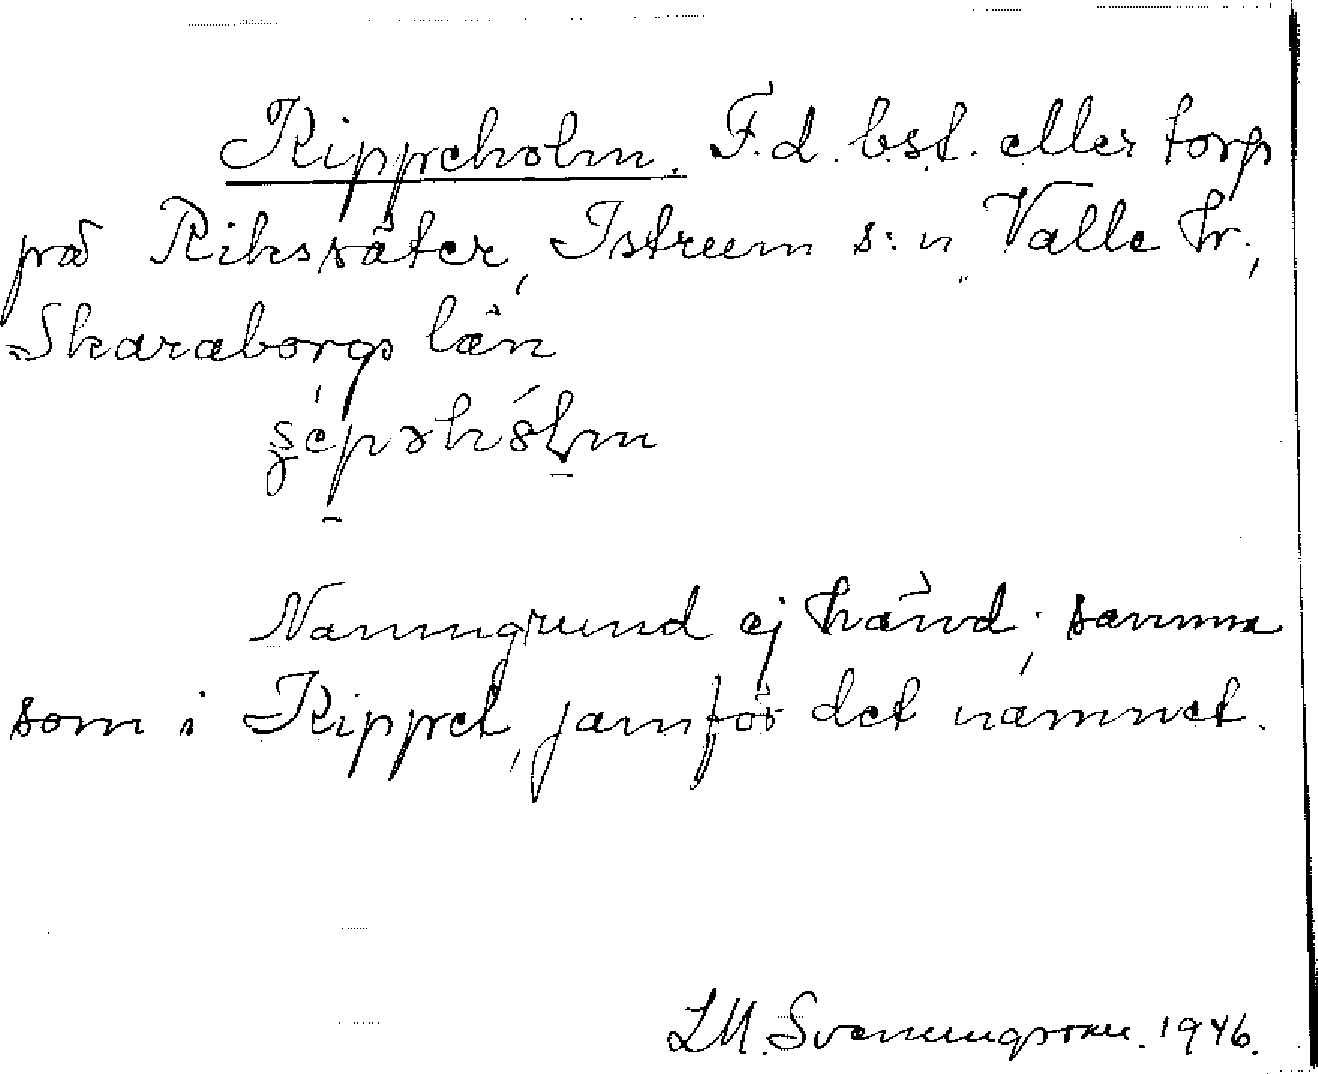 Kippeholm. F.d. bst. eller torp
på Riksäter, Istrum s:n, Valle hr,
Skaraborgs län
Namngrund ej känd; samma
som i Kippet, jämför det namnet.
LM. Svenungsson. 1946.